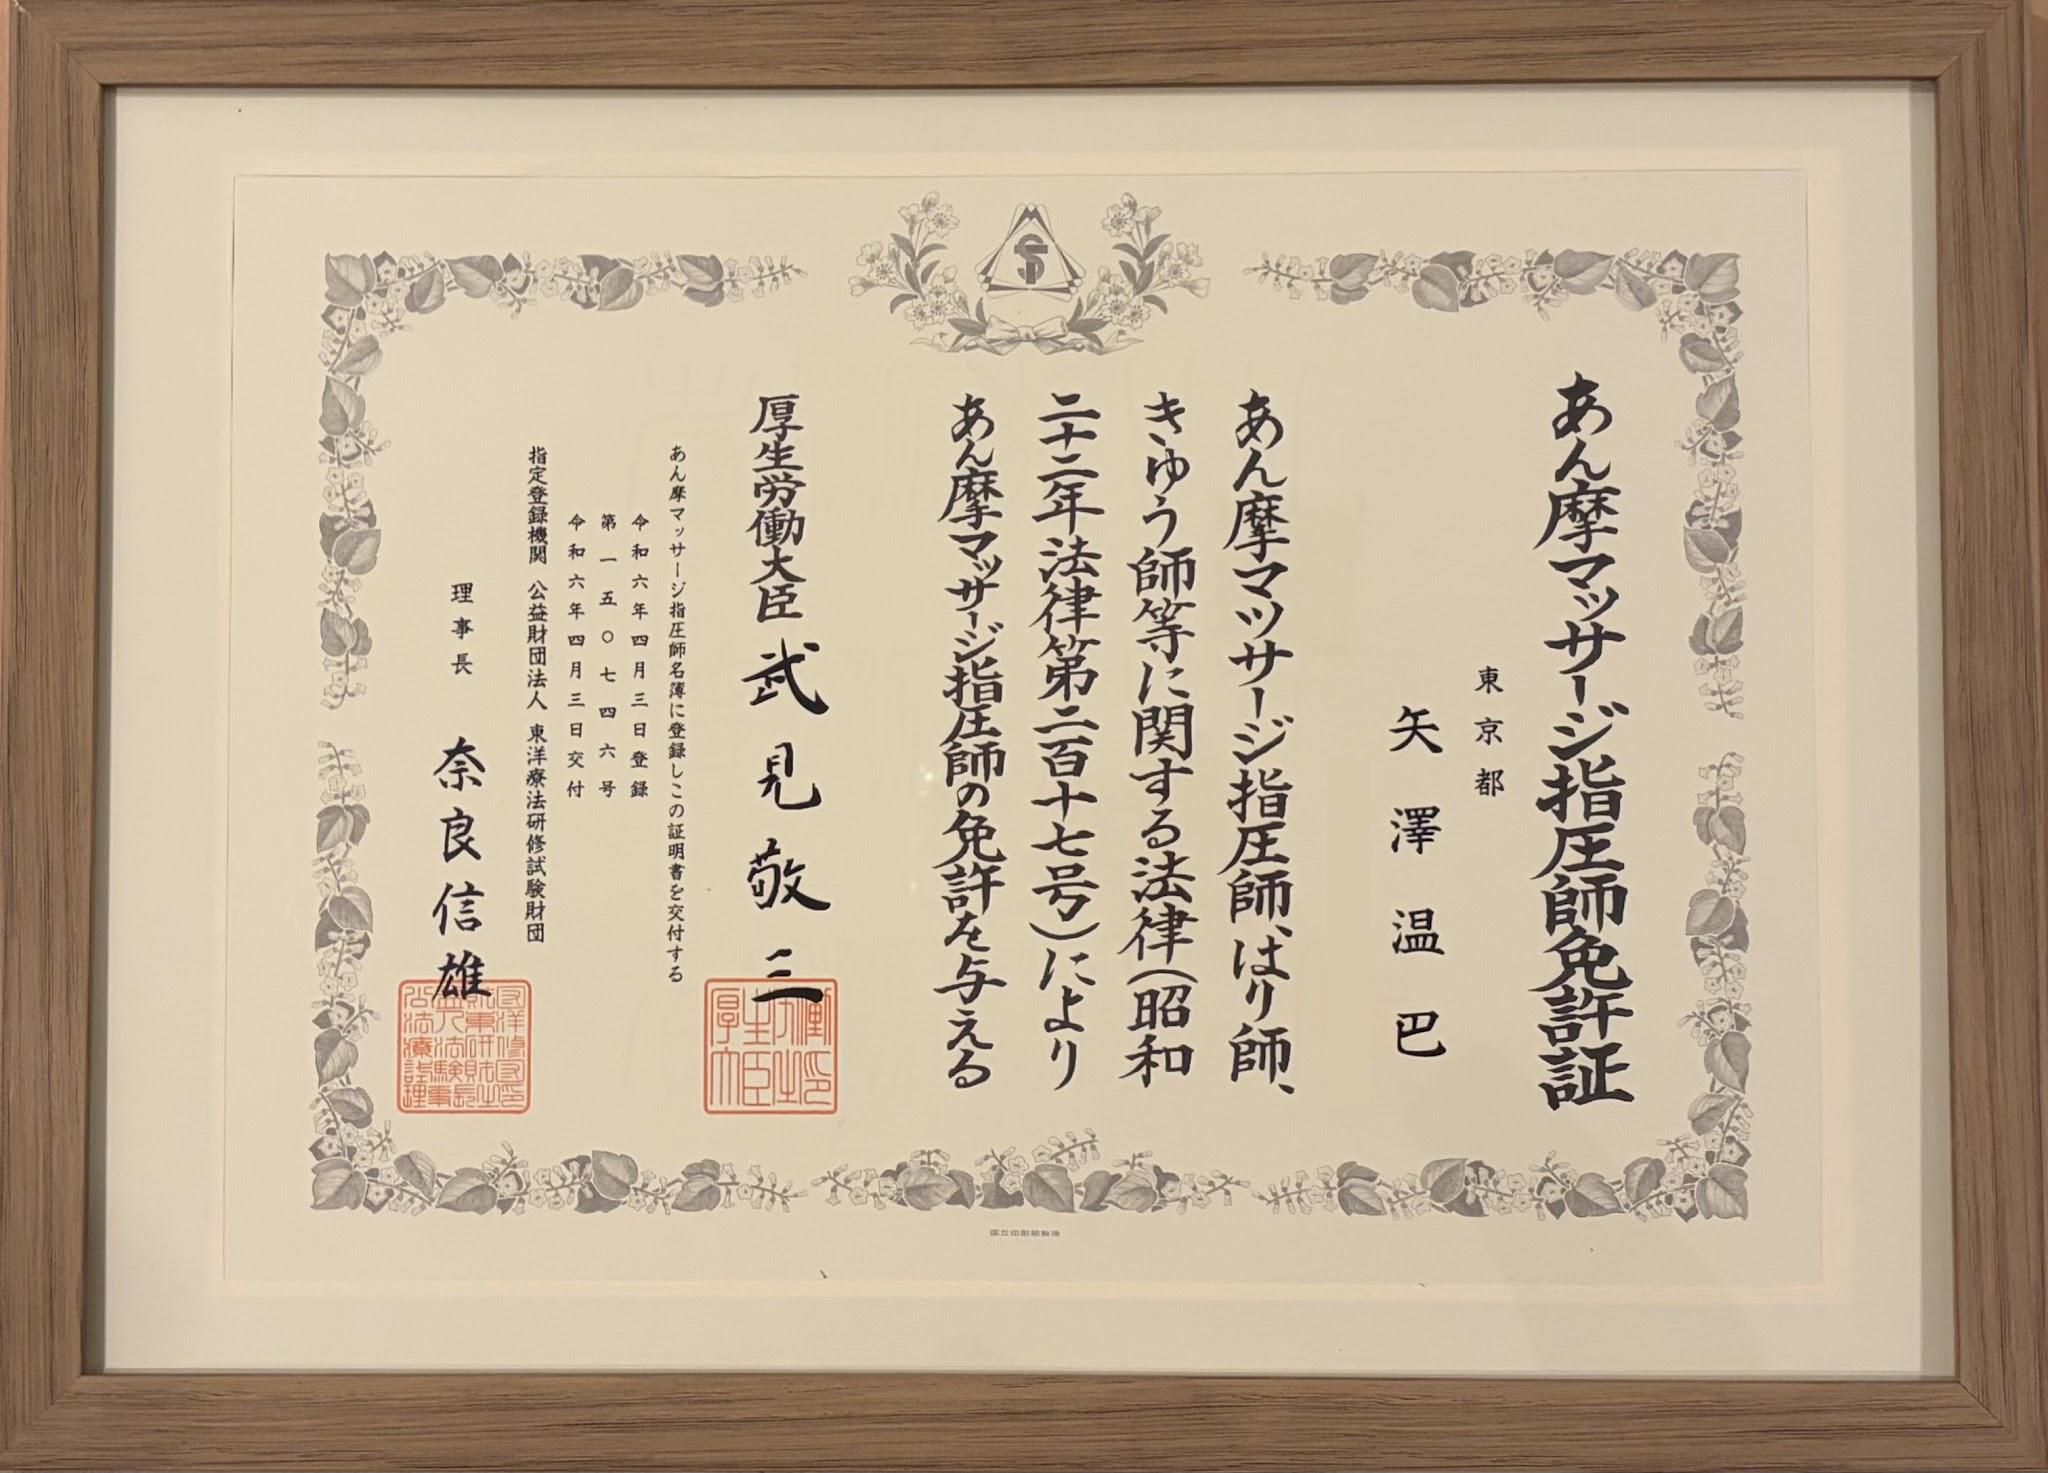 あん摩マッサージ指圧師免許証
東京都
矢澤温巴
あん摩マツサージ指圧師、はり師、
きゆう師等に関する法律（昭和
二十二年法律第二百十七号）により
あん摩マッサージ指圧師の免許を与える
厚生労働大臣 武見敬三
あん摩マッサージ指圧師名簿に登録しこの証明書を交付する
令和六年四月三日登録
第一五〇七四六号
令和六年四月三日交付
指定登録機関 公益財団法人 東洋療法研修試験財団
理事長 奈良信雄
国立印刷局製造